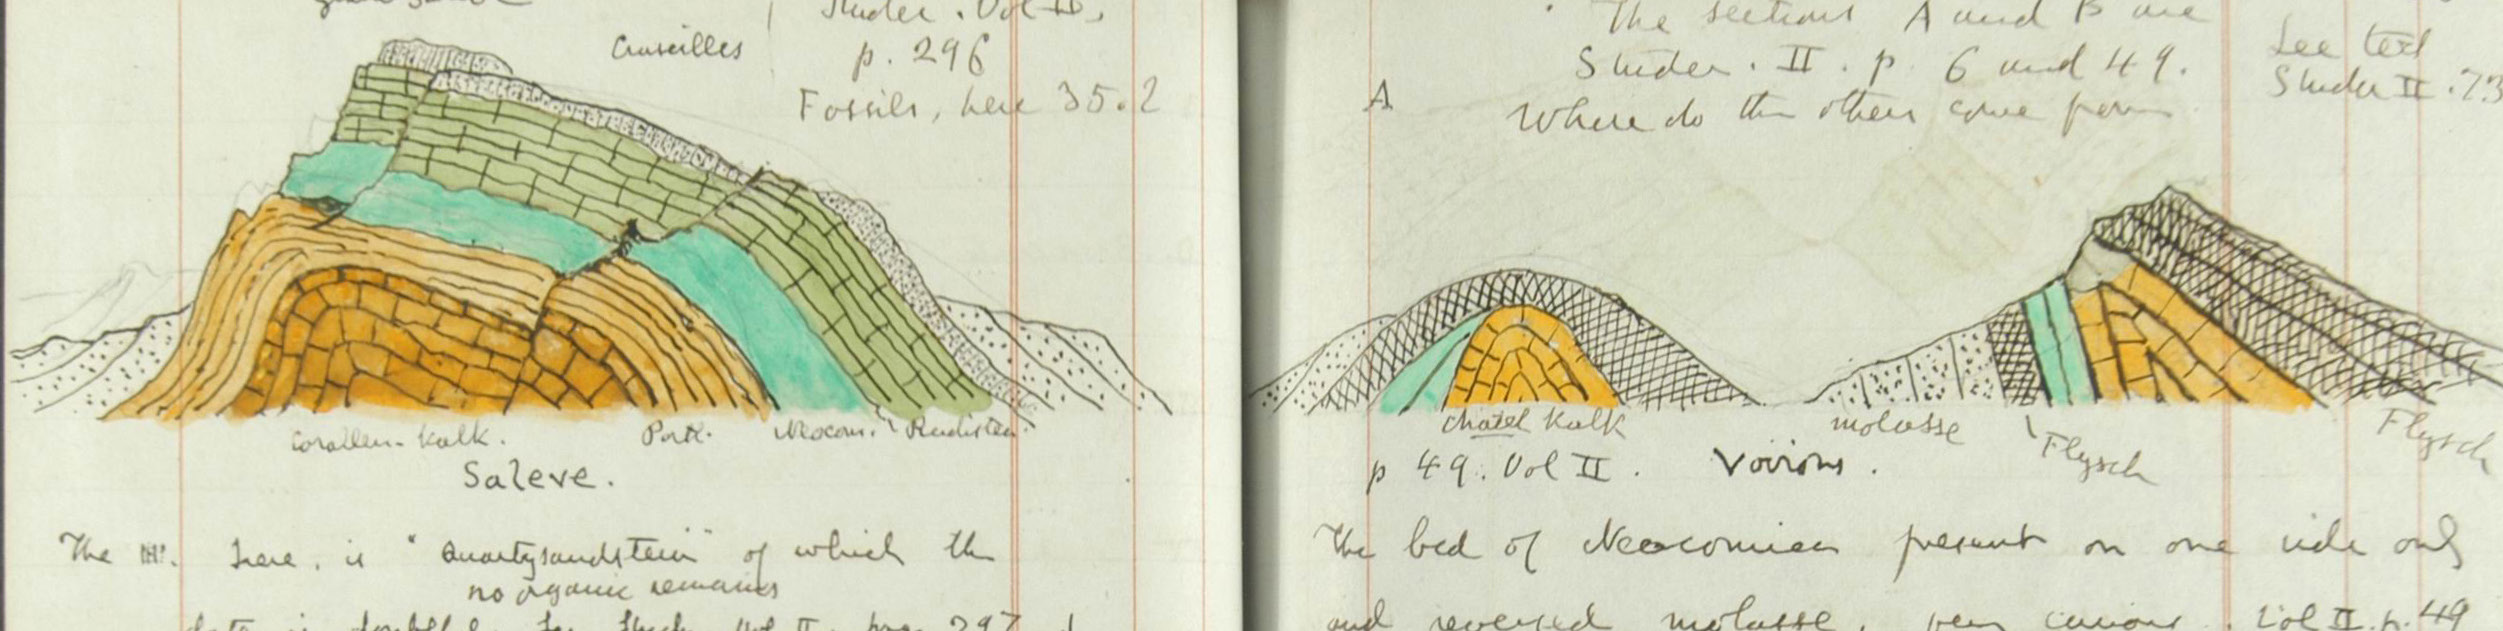 Studer. Vol II,
Cruseilles
p. 296
Fossils, here 35.2
Corallen-Kalk. Portl. Neocom. Rudisten.
Saleve.
The here, is "Quartzsandstein" of which the
no organic remains
Vol II. page 297
The sections A and B are
Studer. II. p. 6 and 49.
Where do the others come from
See text
Studer II. 73
A
Chatel Kalk molasse Flysch Flysch
p 49. Vol II. Voirons.
The bed of Neocomien present on one side only
and reversed molasse, very curious. Vol II. p. 49